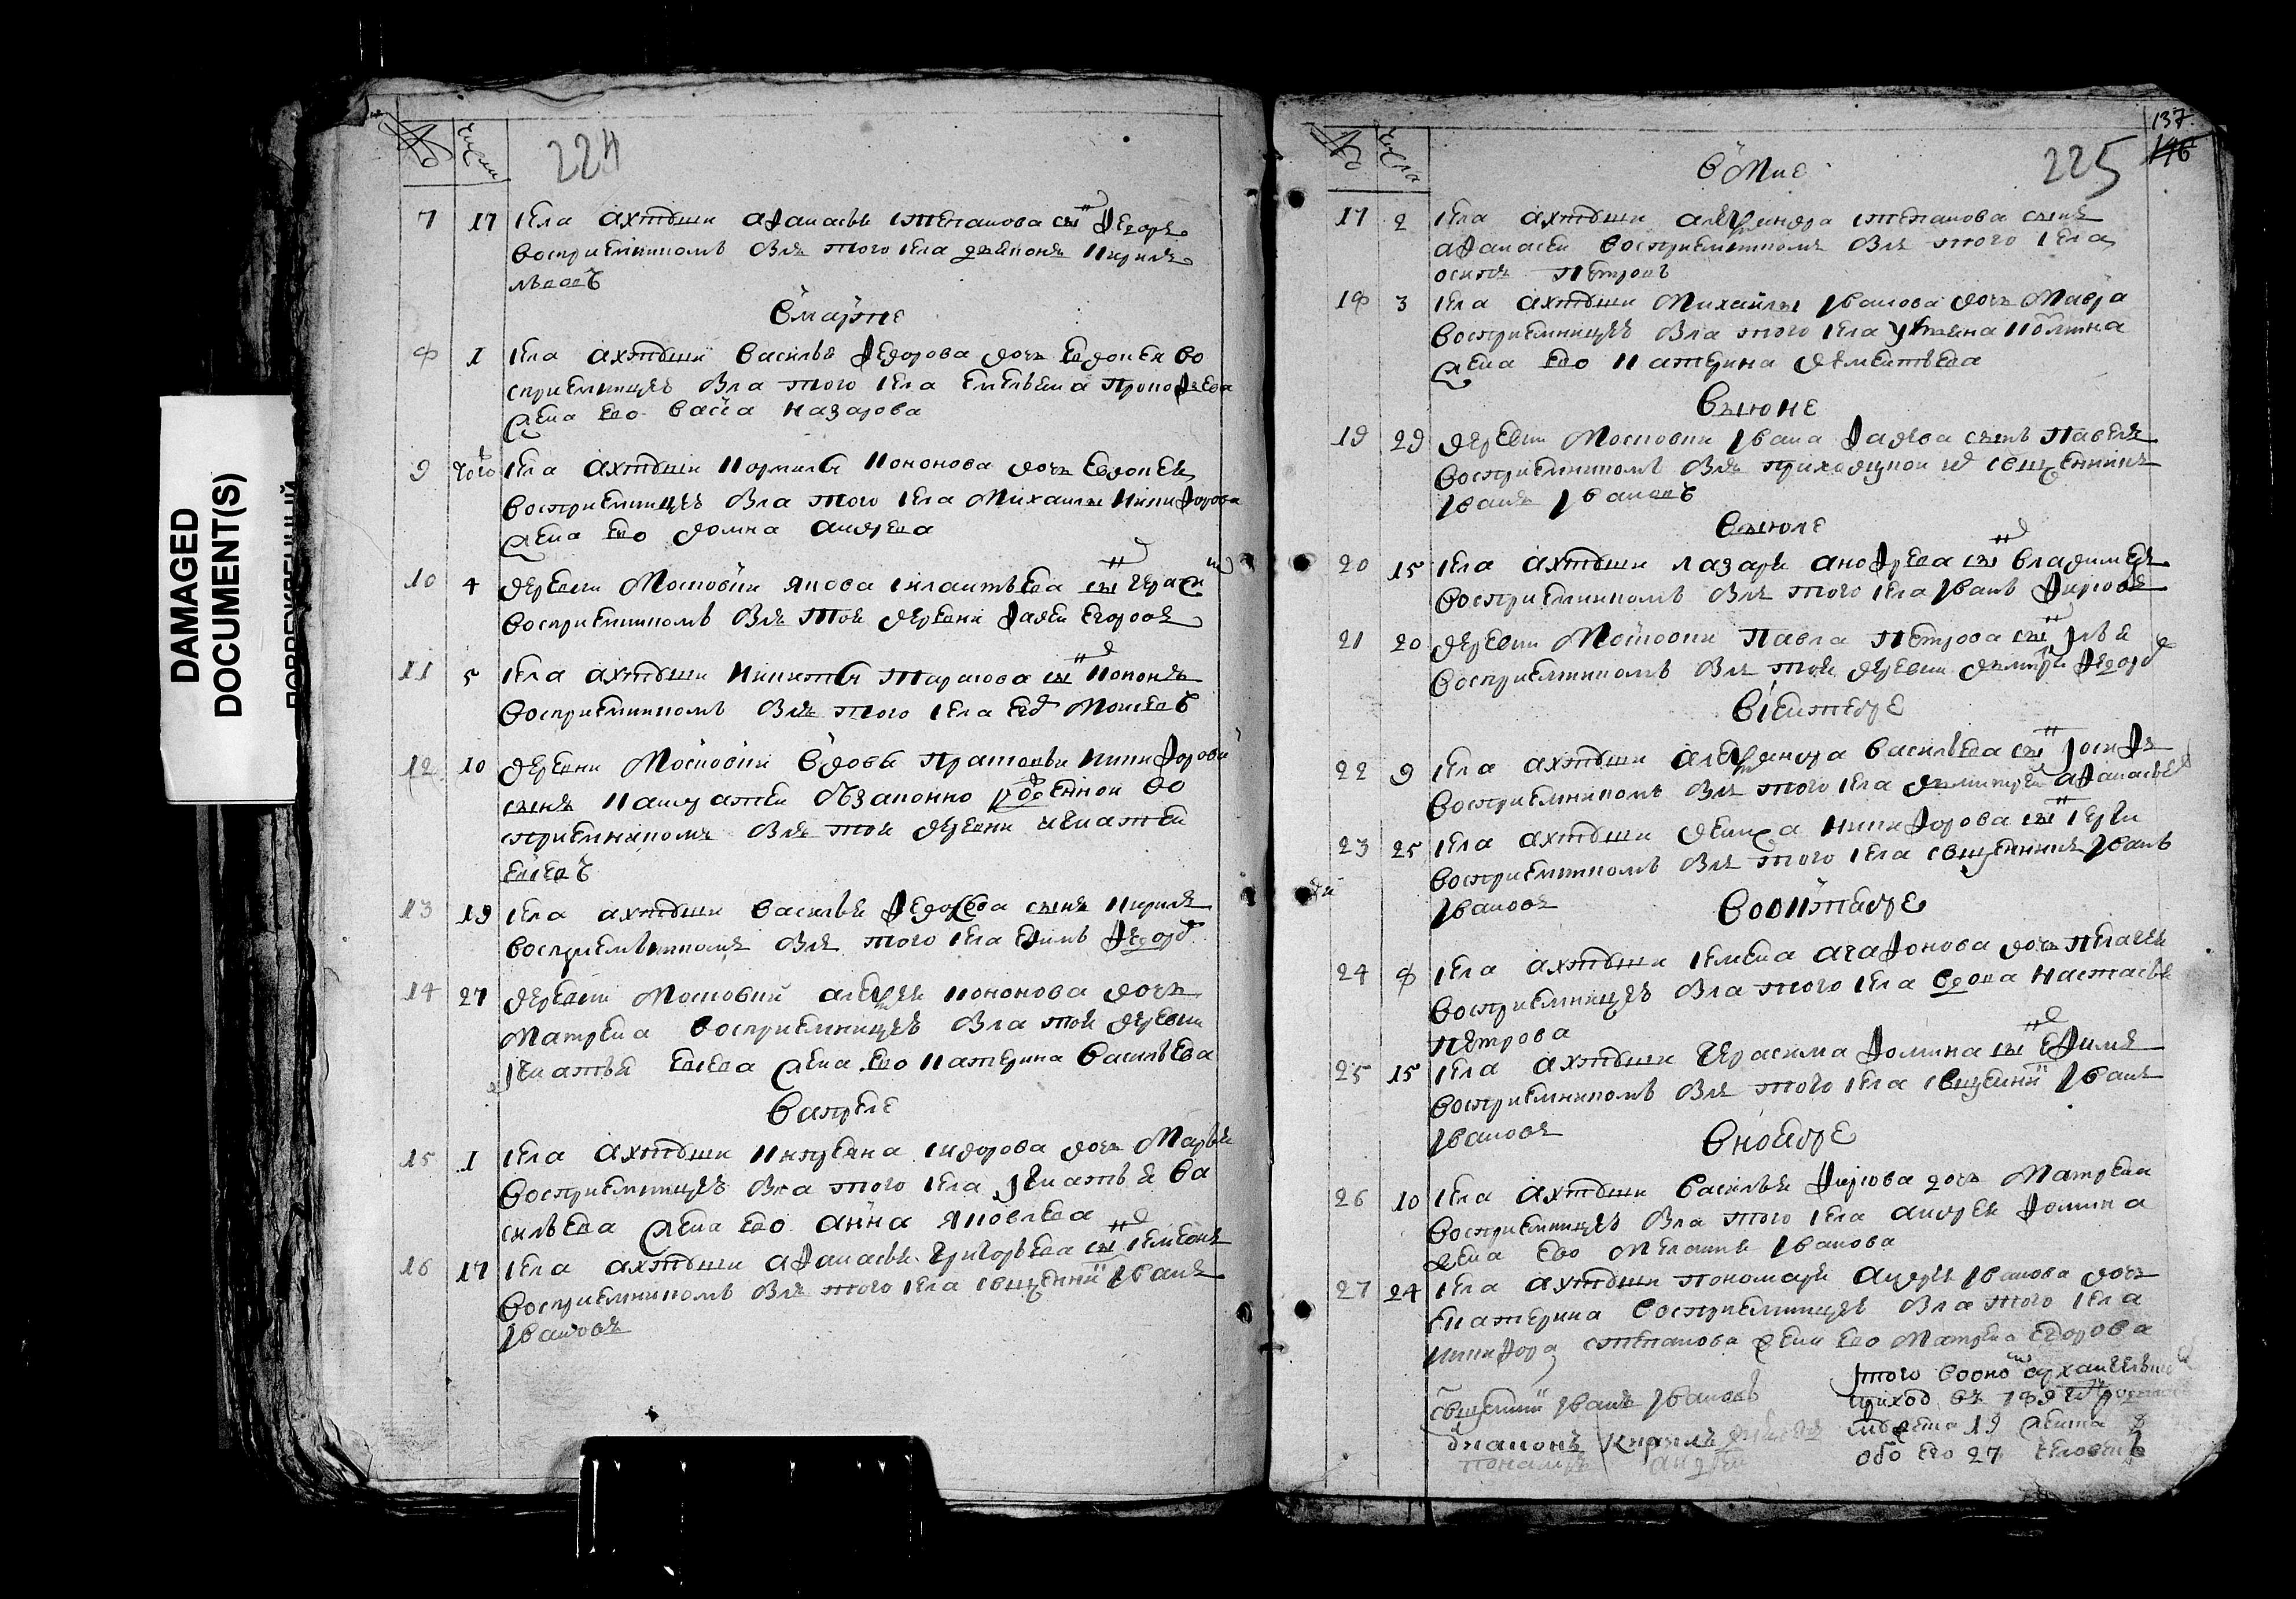 DAMAGED
DOCUMENT(S)
№ числа
224
7 17 села Ахтыши Афанасья Степанова сынъ Федоръ
восприемникомъ былъ того села дьяконъ Кирилъ
львовъ
в марте
8 1 села Ахтыши Василья Федорова дочь Евдокея во
сприемницеѣ была того села Емельяна Прокофьева
жена ево Васса Назарова
9 того села Ахтыши Кормилы Кононова дочь Евдокея
восприемницеѣ была того села Михаилы Никифорова
жена ево Домна Андреева
10 4 деревни Мосповки Якова Силантьева сынъ Герасимъ
восприемникомъ былъ той деревни Фадей Егоровъ
11 5 села Ахтыши Никиты Тарасова сынъ Кононъ
восприемникомъ былъ того села Моисеевъ
12 10 деревни Мосповки вдовы Прасковьи Никифоровой
сынъ незаконно рожденной во
сприемникомъ былъ той деревни Игнатей
Евсеевъ
13 19 села Ахтыши Василья Федосеева сынъ Кирилъ
восприемникомъ былъ того села Ефимъ Федоровъ
14 27 деревни Мосповки Алексея Кононова дочь
Матрена восприемницеѣ была той деревни
Игнатья Евсева жена ево Катерина Васильева
в апреле
15 1 села Ахтыши Сидорова дочь Марья
восприемницеѣ была того села Игнатья Ва
сильева жена ево Анна Яковлева
16 17 села Ахтыши Афанасья Григорьева сынъ Семенъ
восприемникомъ былъ того села священникъ Иванъ
Ивановъ
№ числа
в мае
225
137
146
17 2 села Ахтыши Александра Степанова сынъ
Афанасей восприемникомъ былъ того села
Осипъ Петровъ
18 3 села Ахтыши Михайлы Иванова дочь Мавра
восприемницеѣ была того села
жена ево Катерина Дементьева
в июне
19 29 деревни Мосповки Ивана Фадеева сынъ Павелъ
восприемникомъ былъ приходцкой священникъ
Иванъ Ивановъ
в июле
20 15 села Ахтыши Лазаря Анофрева сынъ Владимеръ
восприемникомъ былъ того села Иванъ Фирсовъ
21 20 деревни Мосповки Павла Петрова сынъ Илья
восприемникомъ былъ той деревни Дмитрей Федоровъ
в сентебре
22 9 села Ахтыши Александра Васильева сынъ Иосифъ
восприемникомъ былъ того села Дмитрей Афанасьевъ
23 25 села Ахтыши Дениса Никифорова сынъ Сергей
восприемникомъ былъ того села священникъ Иванъ
Ивановъ
во октебре
24 8 села Ахтыши Семена Агафонова дочь Пелагея
восприемницеѣ была того села вдова Настасья
Петрова
25 15 села Ахтыши Герасима Фомина сынъ Ефимъ
восприемникомъ былъ того села священникъ Иванъ
Ивановъ
в ноебре
26 10 села Ахтыши Василья Фирсова дочь Матрена
восприемницеѣ была того села Андрея Фомина
жена ево Меланья Иванова
27 24 села Ахтыши пономаря Андрея Иванова дочь
Екатерина восприемницеѣ была того села
Никифора Степанова жена ево Матрена Егорова
священникъ Иванъ Ивановъ
дьяконъ Кирилъ
пономарь Андрей
итого во оно архангельской
приход въ 789 году
мужеска 19 женска 8
обоего 27 человекъ